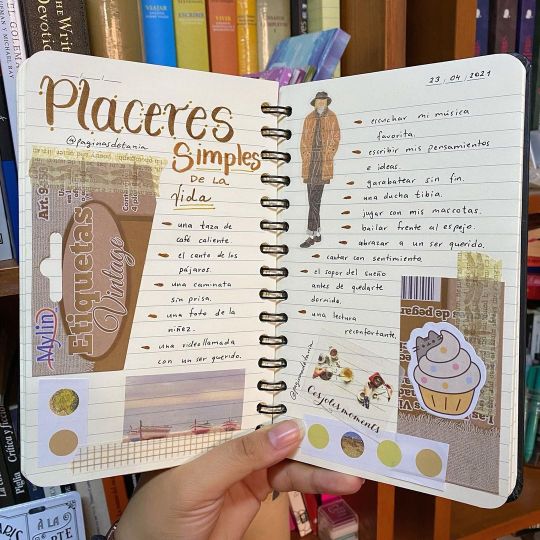 Placeres
@paginasdetania
Simples
DE LA
Vida
una taza de
café caliente.
el canto de los
pájaros.
una caminata
sin prisa.
una foto de la
niñez.
una videollamada
con un ser querido.
Etiquetas
Vintage
Mylin
23 . 04 . 2021
escuchar mi música
favorita.
escribir mis pensamientos
e ideas.
garabatear sin fin.
una ducha tibia.
jugar con mis mascotas.
bailar frente al espejo.
abrazar a un ser querido.
cantar con sentimiento.
el sopor del sueño
antes de quedarte
dormido.
una lectura
reconfortante.
@paginasdetania
Les jolis moments
as de pegar
VIAJAR
ESCRIBIR
VIVIR
the Writer
Devotion
EL GOLEM
Crítica y ficción
Piglia
PARIS
À LA